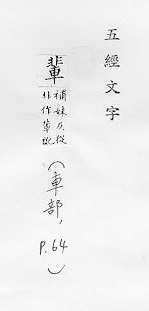 五經文字
輩
補妹反從
北作軰訛
（車部，
P.64）